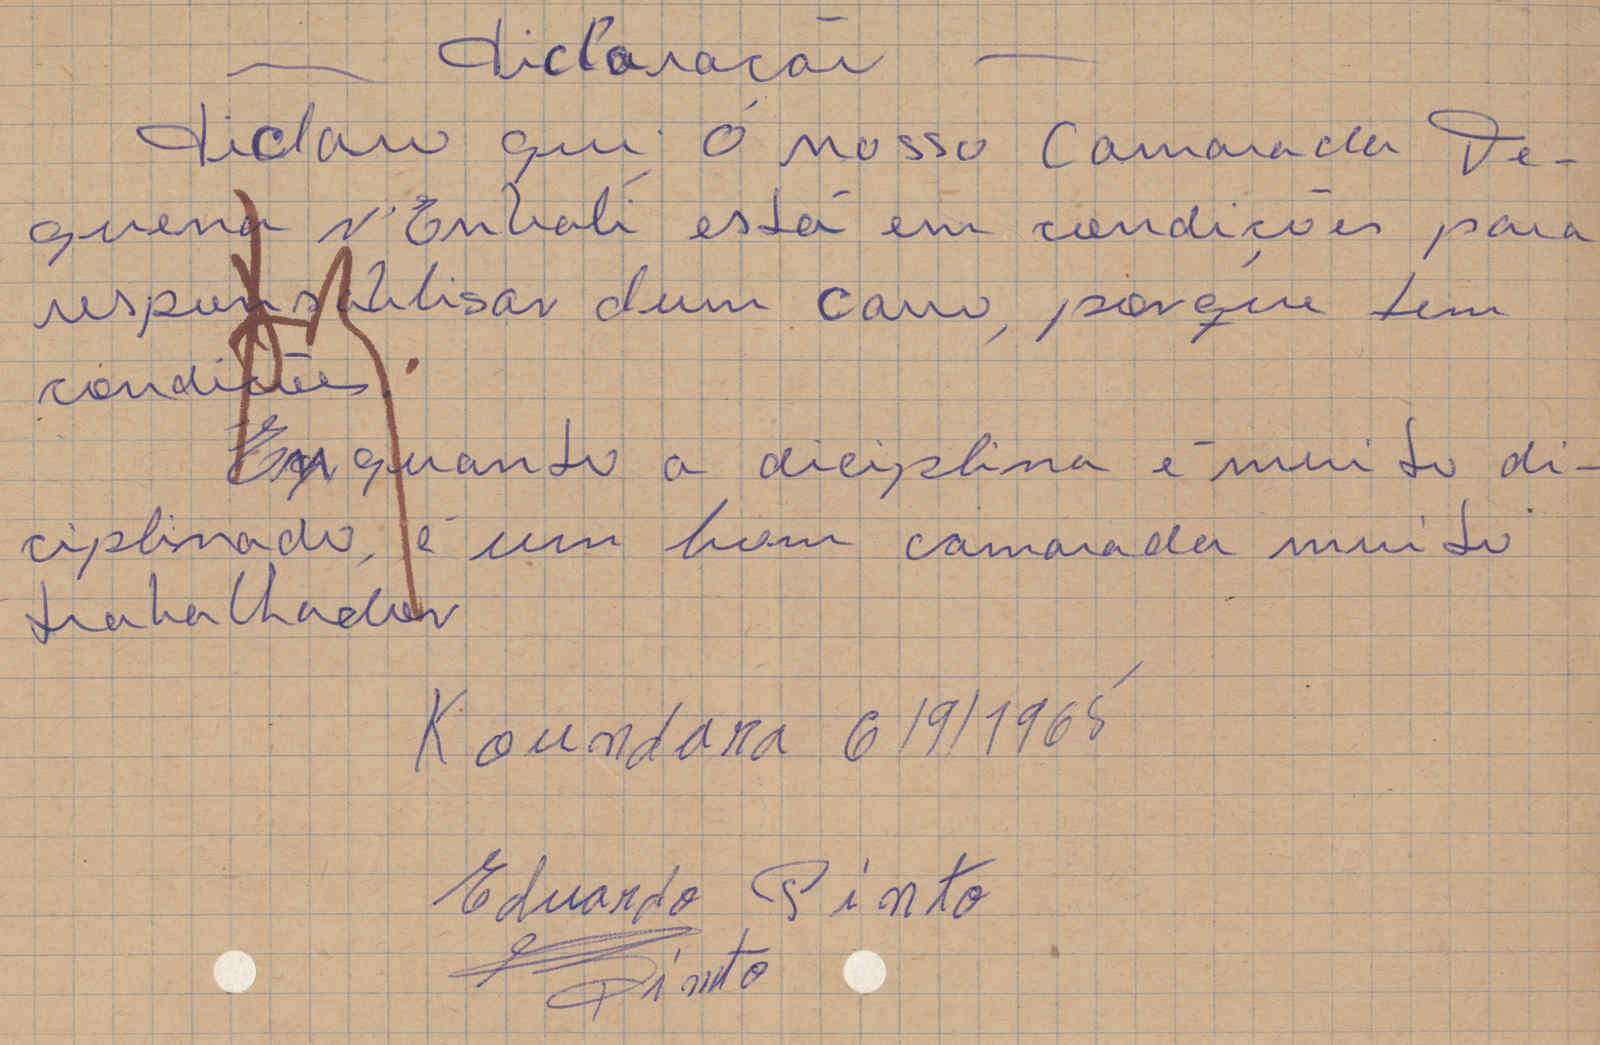 — Diclaração —
Diclaro que Ó nosso Camarada De-
quena N'Enhalí está em condições para
responsabilisar dum carro, porque tem
condições.
Enquanto a diciplina é muito di-
ciplinado, é um bom camarada muito
trabalhador
Koundara 6/9/1965
Eduardo Pinto
Pinto